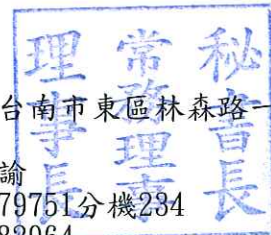 秘書長
常務理事
理事長
台南市東區林森路一
諭
79751分機234